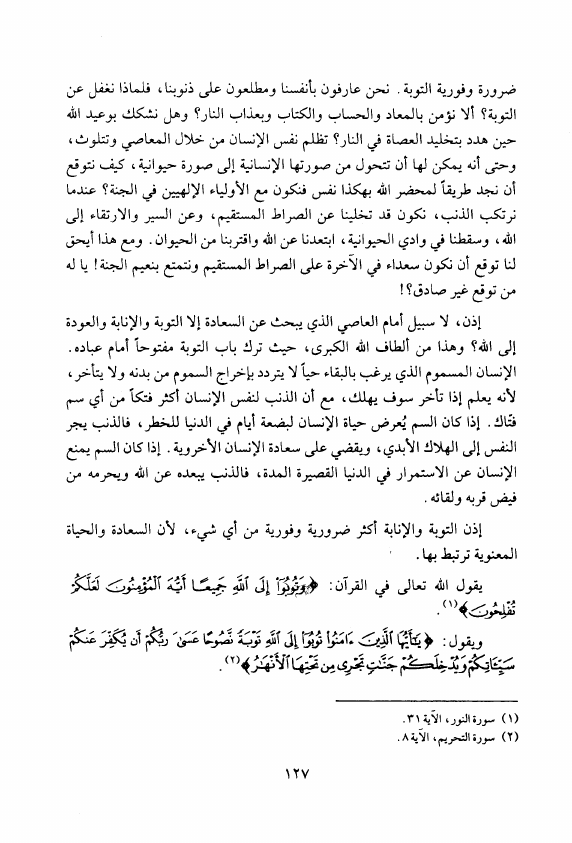 ضرورة وفورية التوبة. نحن عارفون بأنفسنا ومطلعون على ذنوبنا، فلماذا نغفل عن
التوبة؟ ألا نؤمن بالمعاد والحساب والكتاب وبعذاب النار؟ وهل نشكك بوعيد الله
حين هدد بتخليد العصاة في النار؟ تظلم نفس الإنسان من خلال المعاصي وتتلوث،
وحتى أنه يمكن لها أن تتحول من صورتها الإنسانية إلى صورة حيوانية، كيف نتوقع
أن نجد طريقاً لمحضر الله بهكذا نفس فنكون مع الأولياء الإلهيين في الجنة؟ عندما
نرتكب الذنب، نكون قد تخلينا عن الصراط المستقيم، وعن السير والارتقاء إلى
الله، وسقطنا في وادي الحيوانية، ابتعدنا عن الله واقتربنا من الحيوان. ومع هذا أيحق
لنا توقع أن نكون سعداء في الآخرة على الصراط المستقيم ونتمتع بنعيم الجنة! يا له
من توقع غير صادق؟!
إذن، لا سبيل أمام العاصي الذي يبحث عن السعادة إلا التوبة والإنابة والعودة
إلى الله؟ وهذا من ألطاف الله الكبرى، حيث ترك باب التوبة مفتوحاً أمام عباده.
الإنسان المسموم الذي يرغب بالبقاء حياً لا يتردد بإخراج السموم من بدنه ولا يتأخر،
لأنه يعلم إذا تأخر سوف يهلك، مع أن الذنب لنفس الإنسان أكثر فتكاً من أي سم
فتّاك. إذا كان السم يُعرض حياة الإنسان لبضعة أيام في الدنيا للخطر، فالذنب يجر
النفس إلى الهلاك الأبدي، ويقضي على سعادة الإنسان الأخروية. إذا كان السم يمنع
الإنسان عن الاستمرار في الدنيا القصيرة المدة، فالذنب يبعده عن الله ويحرمه من
فيض قربه ولقائه.
إذن التوبة والإنابة أكثر ضرورية وفورية من أي شيء، لأن السعادة والحياة
المعنوية ترتبط بها.
يقول الله تعالى في القرآن: ﴿وَتُوبُوٓا۟ إِلَى ٱللَّهِ جَمِيعًا أَيُّهَ ٱلْمُؤْمِنُونَ لَعَلَّكُمْ
تُفْلِحُونَ﴾(١).
ويقول: ﴿يَٰٓأَيُّهَا ٱلَّذِينَ ءَامَنُوا۟ تُوبُوٓا۟ إِلَى ٱللَّهِ تَوْبَةً نَّصُوحًا عَسَىٰ رَبُّكُمْ أَن يُكَفِّرَ عَنكُمْ
سَيِّـَٔاتِكُمْ وَيُدْخِلَكُمْ جَنَّٰتٍ تَجْرِى مِن تَحْتِهَا ٱلْأَنْهَٰرُ﴾(٢).
(١) سورة النور، الآية ٣١.
(٢) سورة التحريم، الآية ٨.
١٢٧